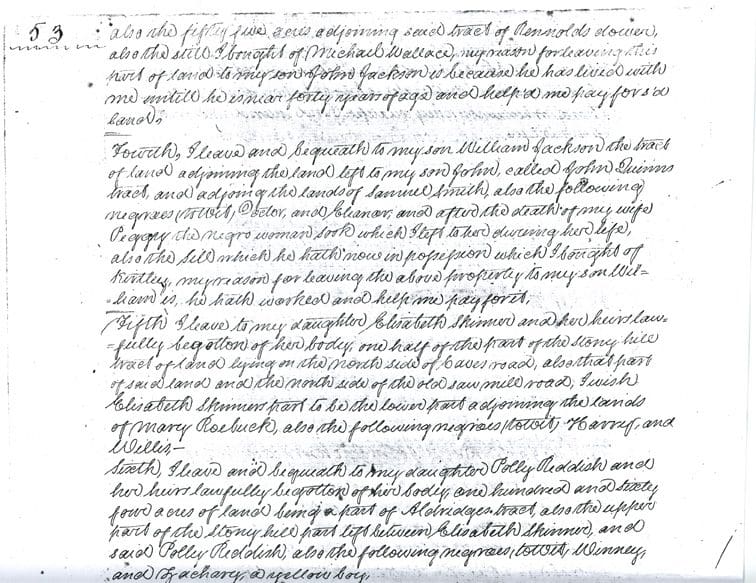 53
also the fifty five acres, adjoining said tract of Rennolds dower,
also the still I bought of Michael Wallace, my reason for leaving this
part of land to my son John Jackson is because he has lived with
me untill he is near forty years of age and help'd me pay for s'd
land,
Fourth, I leave and bequeath to my son William Jackson the tract
of land adjoining the land left to my son John, called John Quinns
tract, and adjoing the lands of Samuel Smith, also the following
negroes, towit, Doctor, and Eleanor, and after the death of my wife
Peggy the negro woman sook which I left to her during her life,
also the still which he hath now in possession which I bought of
Kirtley, my reason for leaving the above property to my son Wil-
-liam is, he hath worked and help me pay for it,
Fifth I leave to my daughter Elisabeth Skinner and her heirs law-
-fully begotton of her body, one half of the part of the stony hill
tract of land lying on the north side of Caves road, also that part
of said land and the north side of the old saw mill road, I wish
Elisabeth Skinners part to be the lower part adjoining the lands
of Mary Roebuck, also the following negroes, towit, Harry, and
Willis,-
Sixth, I leave and bequeath to my daughter Polly Reddish and
her heirs lawfully begotton of her body, one hundred and sixty
four acres of land being a part of Aldridges tract, also the upper
part of the stony hill part left between Elisabeth Skinner, and
said Polly Reddish, also the following negroes, towit, Winney,
and Zachary, a yellow boy,